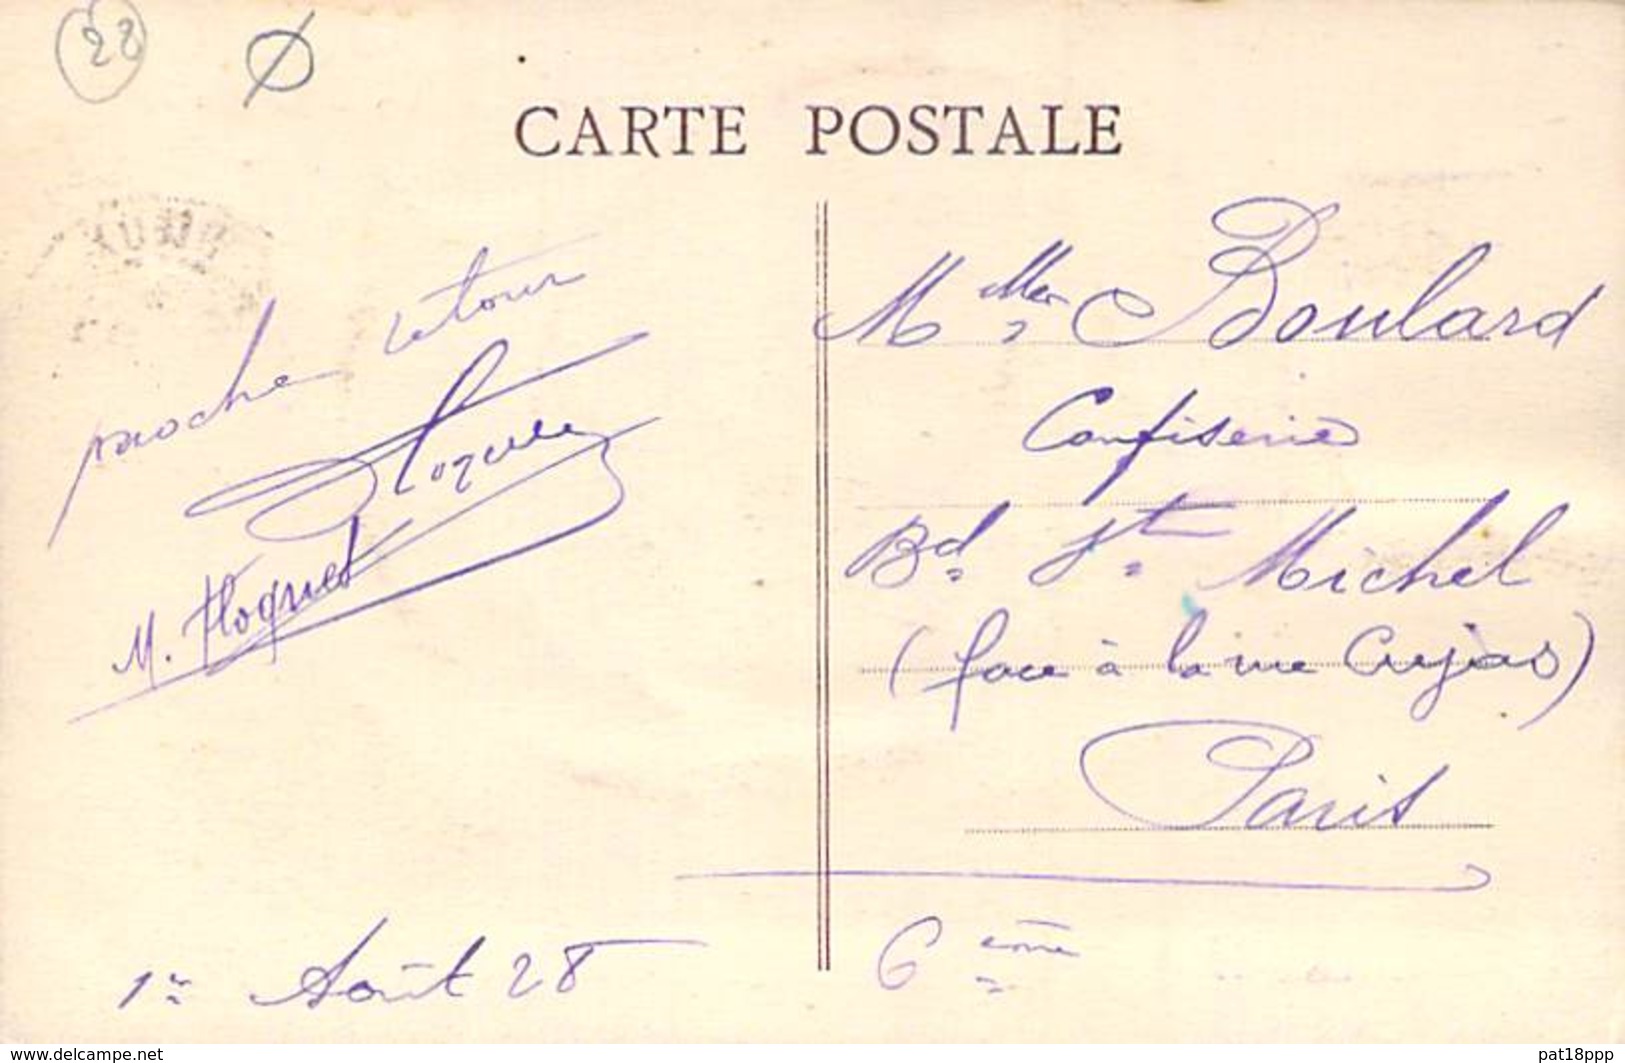 28
CARTE POSTALE
proche retour
M. Floquet
1er Août 28
Melles Boulard
Confiserie
Bd St Michel
(face à la rue Cujas)
Paris
6ème
www.delcampe.net
pat18ppp